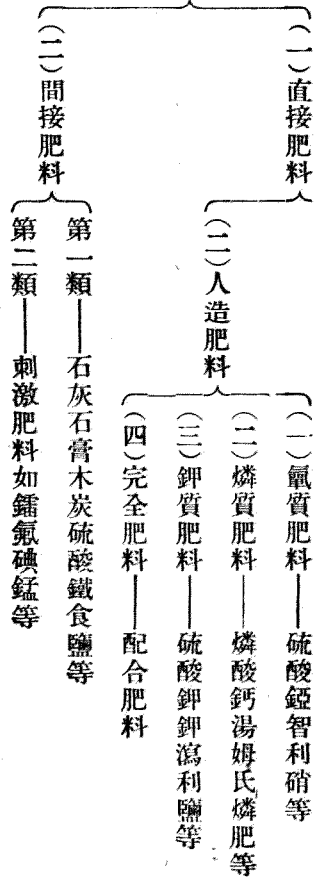 （一）直接肥料
（二）人造肥料
（一）氮質肥料——硫酸錏智利硝等
（二）燐質肥料——燐酸鈣湯姆氏燐肥等
（三）鉀質肥料——硫酸鉀鉀瀉利鹽等
（四）完全肥料——配合肥料
（二）間接肥料
第一類——石灰石膏木炭硫酸鐵食鹽等
第二類——刺激肥料如鐳氟碘錳等